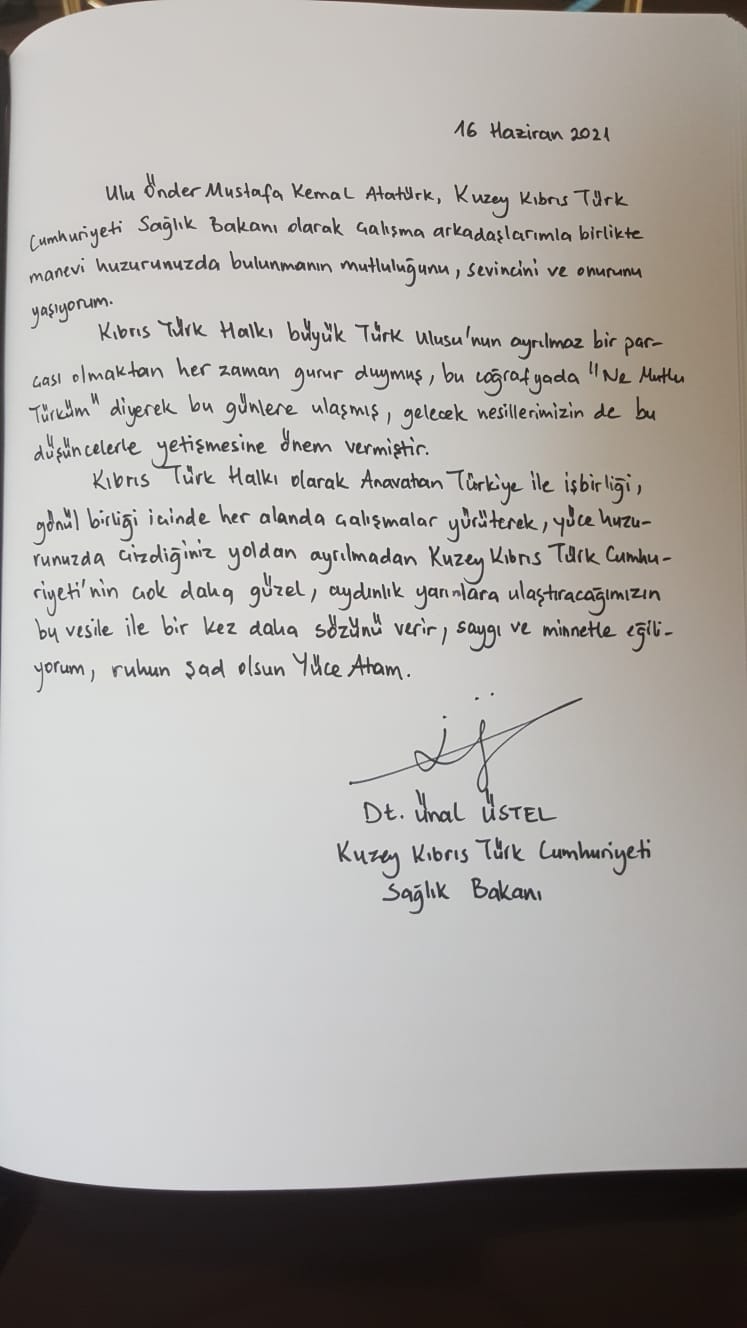 16 Haziran 2021
Ulu Önder Mustafa Kemal Atatürk, Kuzey Kıbrıs Türk
Cumhuriyeti Sağlık Bakanı olarak çalışma arkadaşlarımla birlikte
manevi huzurunuzda bulunmanın mutluluğunu, sevincini ve onurunu
yaşıyorum.
Kıbrıs Türk Halkı büyük Türk Ulusu'nun ayrılmaz bir par-
çası olmaktan her zaman gurur duymuş, bu coğrafyada "Ne Mutlu
Türküm" diyerek bu günlere ulaşmış, gelecek nesillerimizin de bu
düşüncelerle yetişmesine önem vermiştir.
Kıbrıs Türk Halkı olarak Anavatan Türkiye ile işbirliği,
gönül birliği içinde her alanda çalışmalar yürüterek, yüce huzu-
runuzda çizdiğiniz yoldan ayrılmadan Kuzey Kıbrıs Türk Cumhu-
riyeti'nin çok daha güzel, aydınlık yarınlara ulaştıracağımızın
bu vesile ile bir kez daha sözünü verir, saygı ve minnetle eğili-
yorum, ruhun şad olsun Yüce Atam.
Dt. Ünal ÜSTEL
Kuzey Kıbrıs Türk Cumhuriyeti
Sağlık Bakanı